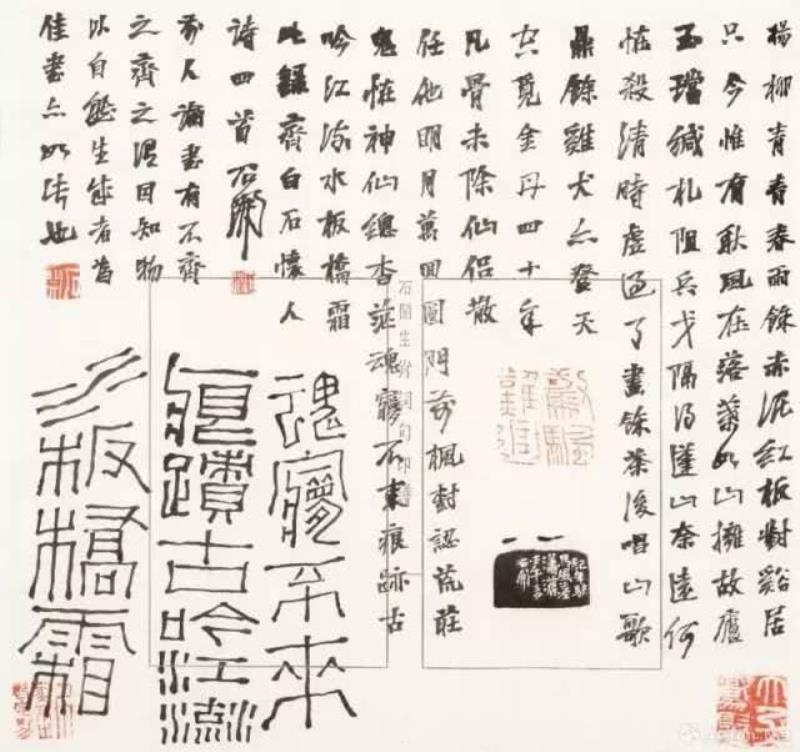 楊柳青青春雨餘赤泥紅板對谿居
只今惟有耿風在落葉如山擁故廬
玉璫緘札阻兵戈隔得蓬山奈遠何
怪殺清時虛過了畫餘茶後唱山歌
鼎餘雞犬亦登天
覓金丹四十年
凡骨未除仙侶散
任他明月萬回圓門前楓樹認荒莊
鬼怪神仙總杳茫魂夢不來痕跡古
吟江流水板橋霜
此錄齊白石懷人
詩四首石開
前人論書有不齊
之齊之謂固知物
以自然生能者為
佳書亦如法也
魂夢不來
痕蹟古吟江流
水板橋霜
石開生肖詞句印譜